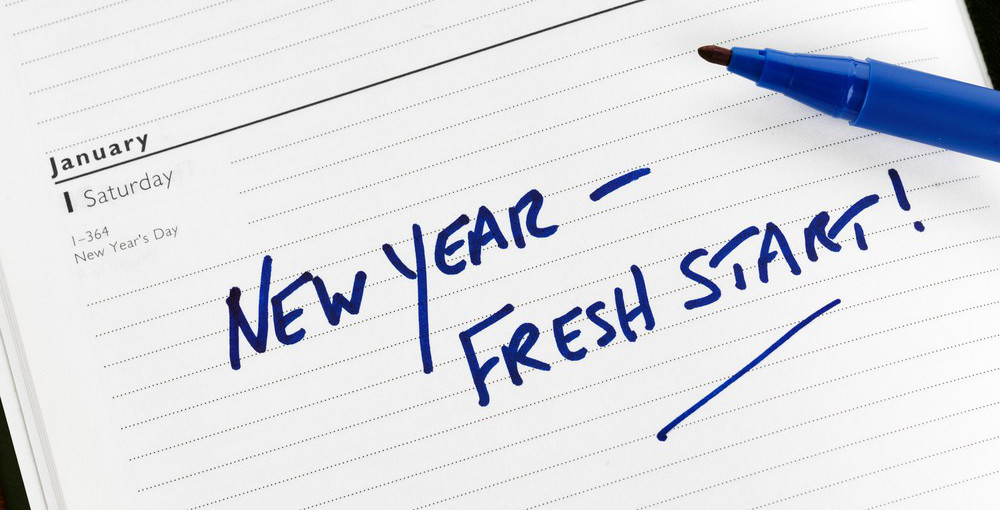 January
1 Saturday
1-364
New Year's Day
NEW YEAR –
FRESH START!